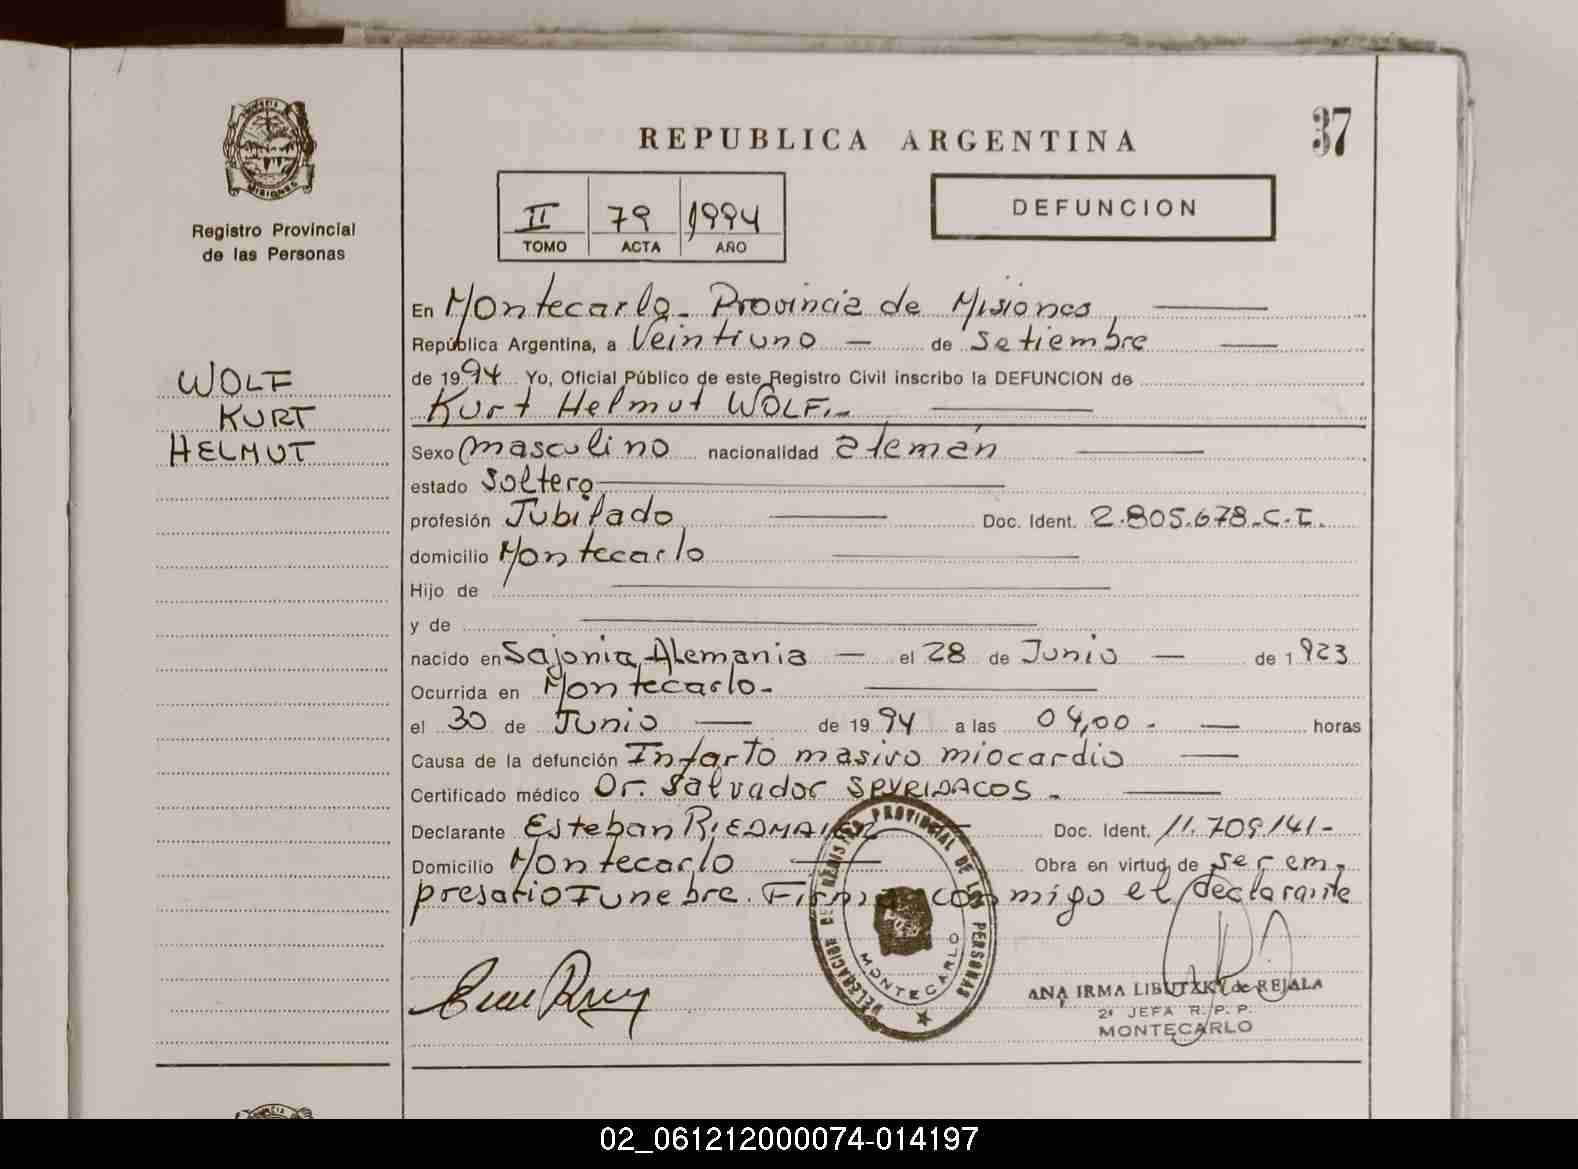 REPUBLICA ARGENTINA
37
II 79 1994
TOMO ACTA AÑO
DEFUNCION
Registro Provincial
de las Personas
WOLF
KURT
HELMUT
En Montecarlo - Provincia de Misiones
República Argentina, a Veintiuno — de Setiembre
de 1994 Yo, Oficial Público de este Registro Civil inscribo la DEFUNCION de
Kurt Helmut WOLF.-
Sexo masculino nacionalidad alemán
estado Soltero
profesión Jubilado Doc. Ident. 2.805.678.C.I.
domicilio Montecarlo
Hijo de
y de
nacido en Sajonia, Alemania — el 28 de Junio — de 1923
Ocurrida en Montecarlo-
el 30 de Junio — de 1994 a las 04,00 - — horas
Causa de la defunción Infarto masivo miocardio
Certificado médico Dr. Salvador SPYRIDACOS -
Declarante Esteban Doc. Ident. 11.709.141-
Domicilio Montecarlo Obra en virtud de ser em-
presario Funebre. Firma conmigo el declarante
DELEGACION DEL REGISTRO PROVINCIAL DE LAS PERSONAS
MONTECARLO
ANA IRMA LIBUTZKY de REJALA
2ª JEFA R. P. P.
MONTECARLO
02_061212000074-014197